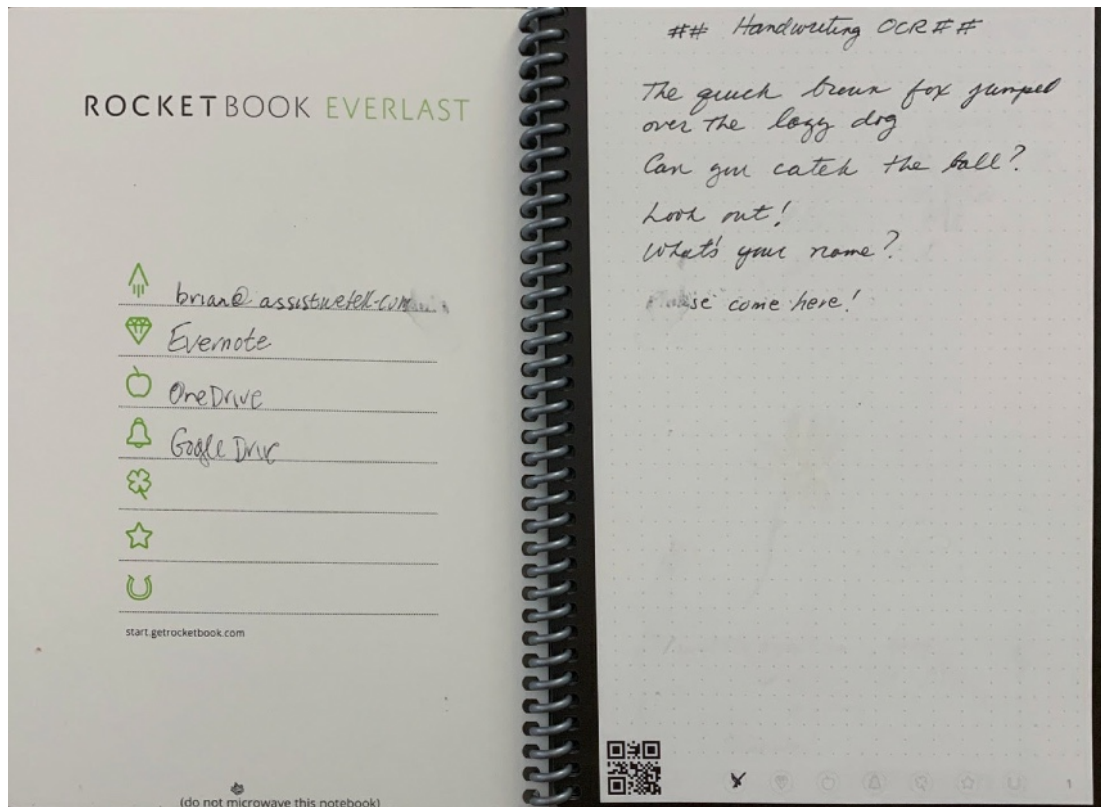 ROCKETBOOK EVERLAST
Evernote
OneDrive
Google Driv
start.getrocketbook.com
(do not microwave this notebook)
## Handwriting OCR##
The quick brown fox jumped
over the lazy dog
Can you catch the ball?
Look out!
What's your name?
come here!
1